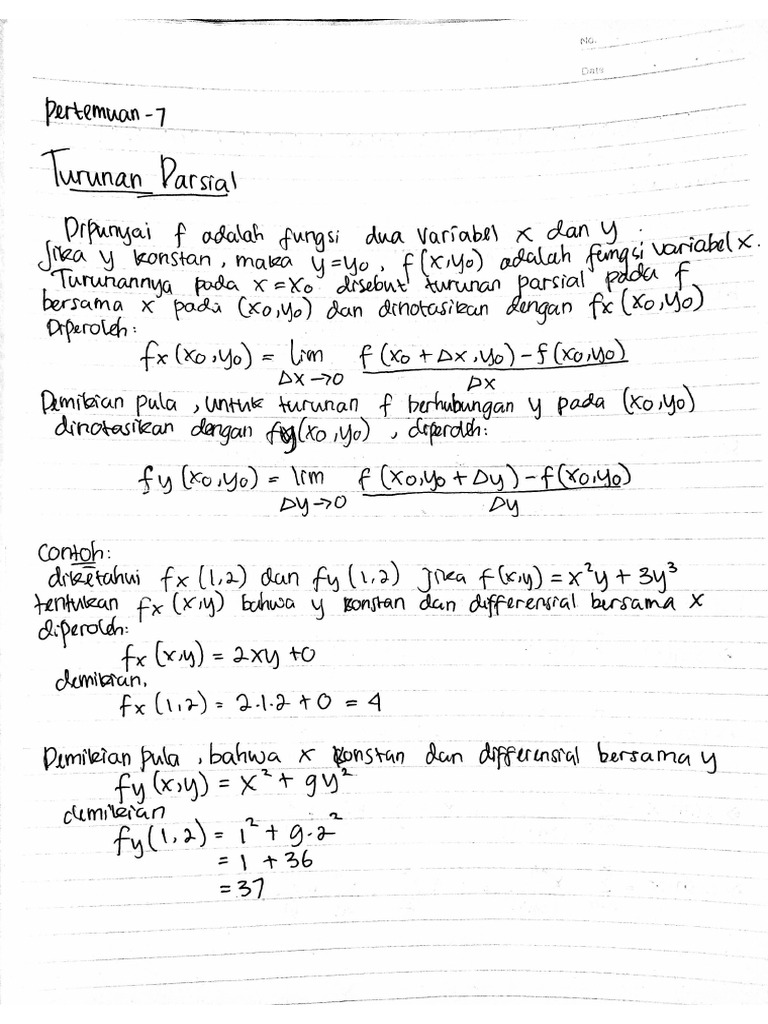 No.
Date
Pertemuan - 7
Turunan Parsial
Dipunyai f adalah fungsi dua variabel x dan y.
Jika y konstan, maka y = y₀, f(x,y₀) adalah fungsi variabel x.
Turunannya pada x = x₀ disebut turunan parsial pada f
bersama x pada (x₀,y₀) dan dinotasikan dengan fx(x₀,y₀)
Diperoleh:
fx(x₀,y₀) = lim f(x₀ + Δx, y₀) - f(x₀,y₀)
Δx→0 Δx
Demikian pula, untuk turunan f berhubungan y pada (x₀,y₀)
dinotasikan dengan fy(x₀,y₀), diperoleh:
fy(x₀,y₀) = lim f(x₀,y₀ + Δy) - f(x₀,y₀)
Δy→0 Δy
Contoh:
diketahui fx(1,2) dan fy(1,2) jika f(x,y) = x²y + 3y³
tentukan fx(x,y) bahwa y konstan dan differensial bersama x
diperoleh:
fx(x,y) = 2xy + 0
demikian,
fx(1,2) = 2.1.2 + 0 = 4
Demikian pula, bahwa x konstan dan differensial bersama y
fy(x,y) = x² + 9y²
demikian
fy(1,2) = 1² + 9.2²
= 1 + 36
= 37